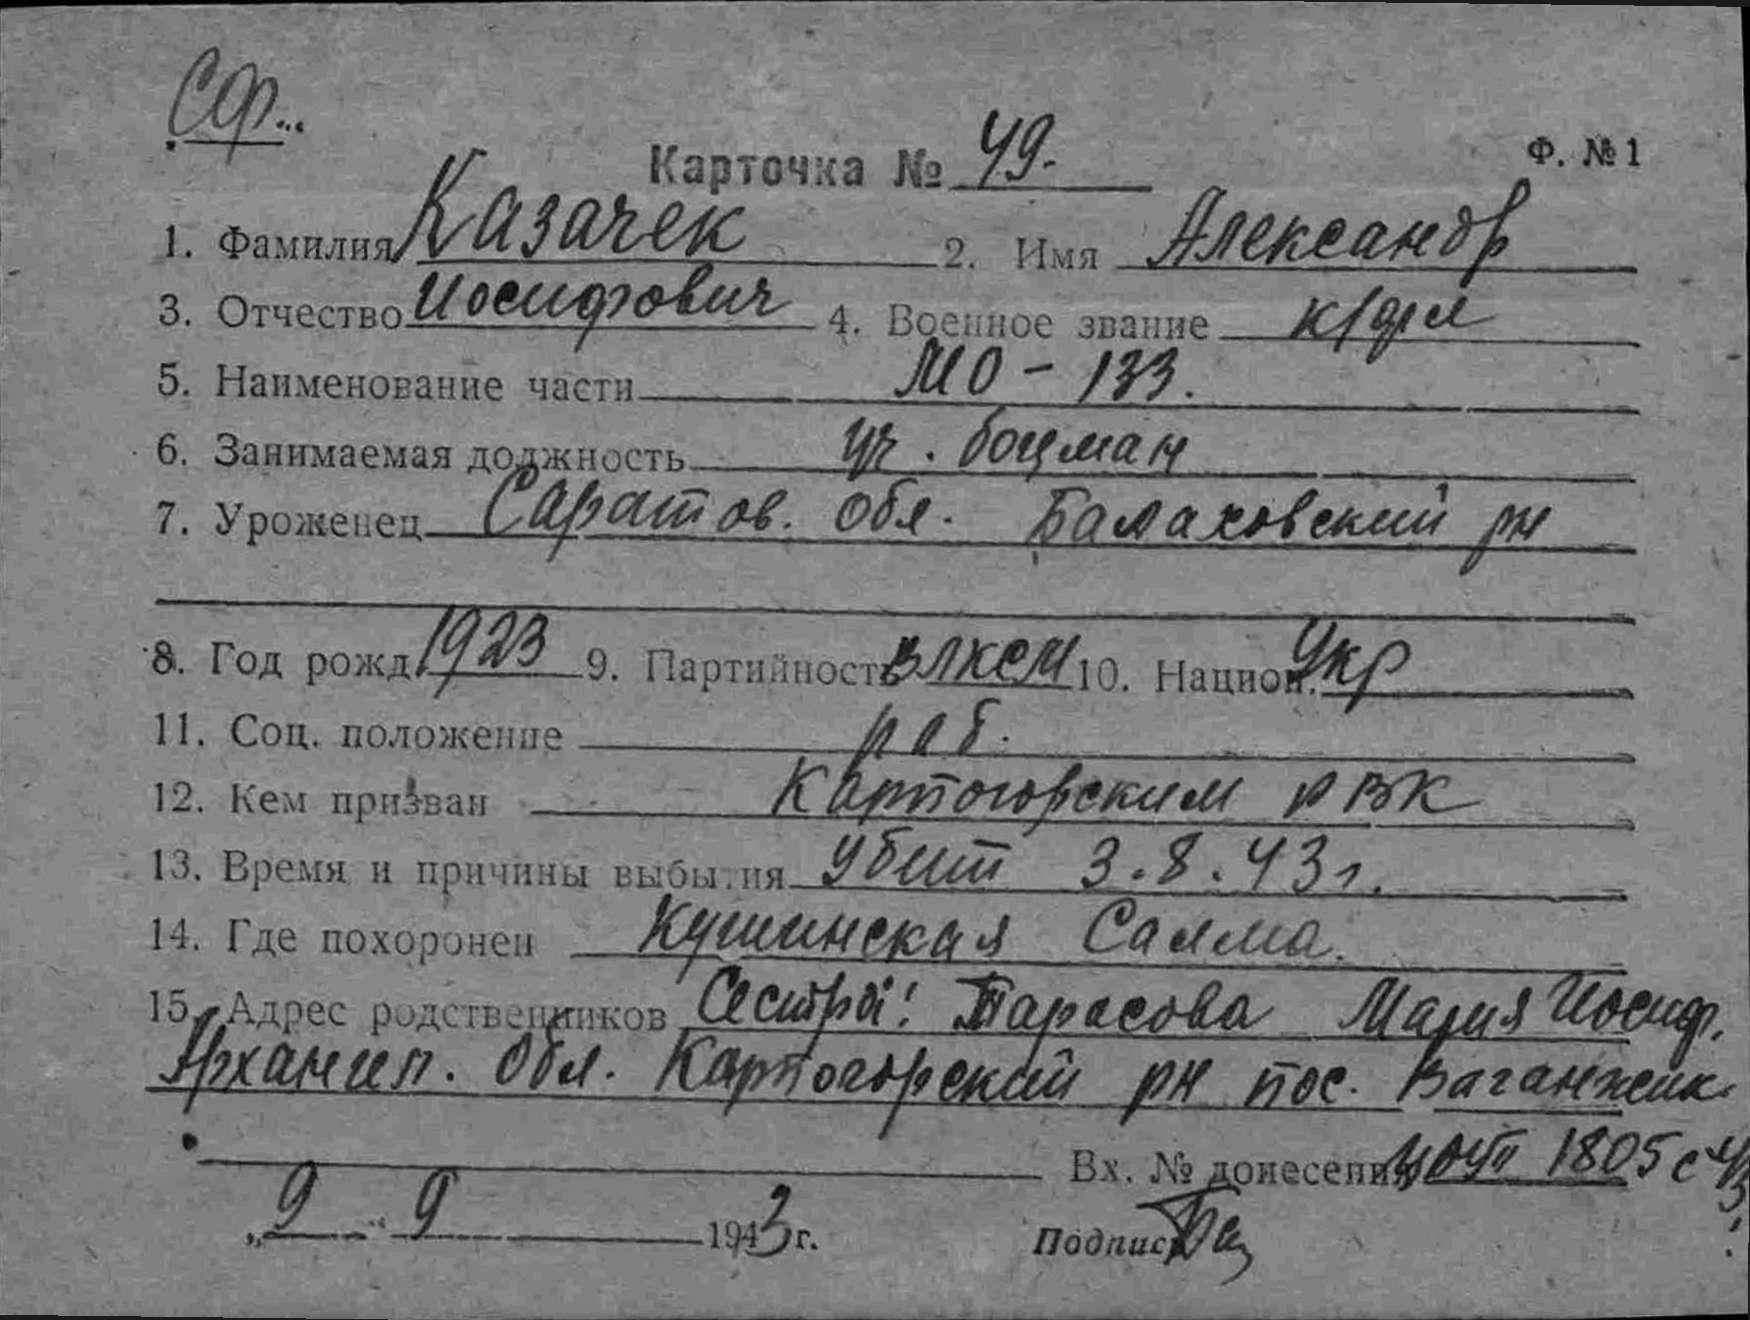 СФ...
Карточка № 49.
Ф. № 1
1. Фамилия Казачек 2. Имя Александр
3. Отчество Иосифович 4. Военное звание к/фл
5. Наименование части МО - 133.
6. Занимаемая должность уч. боцман
7. Уроженец Саратов. обл. Балаховский рн
8. Год рожд. 1923 9. Партийность ВЛКСМ 10. Национ. Укр
11. Соц. положение раб.
12. Кем призван Карпогорским РВК
13. Время и причины выбытия убит 3.8.43 г.
14. Где похоронен Кушинская Салма.
15. Адрес родственников Сестра: Тарасова Мария Иосиф.
Архангел. обл. Карпогорский рн пос. Ваганжик.
Вх. № донесения 1805 с
„9 " 9 1943 г. Подпись